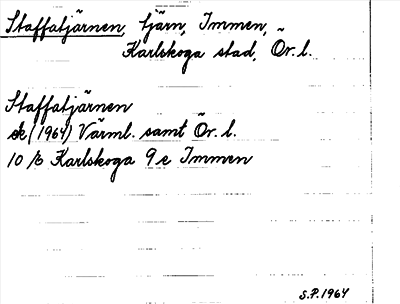 Staffatjärnen, tjärn, Immen,
Karlskoga stad, Ör. l.
Staffatjärnen
ek (1964) Värml. samt Ör. l.
10 /6 Karlskoga 9 e Immen
S.P. 1964